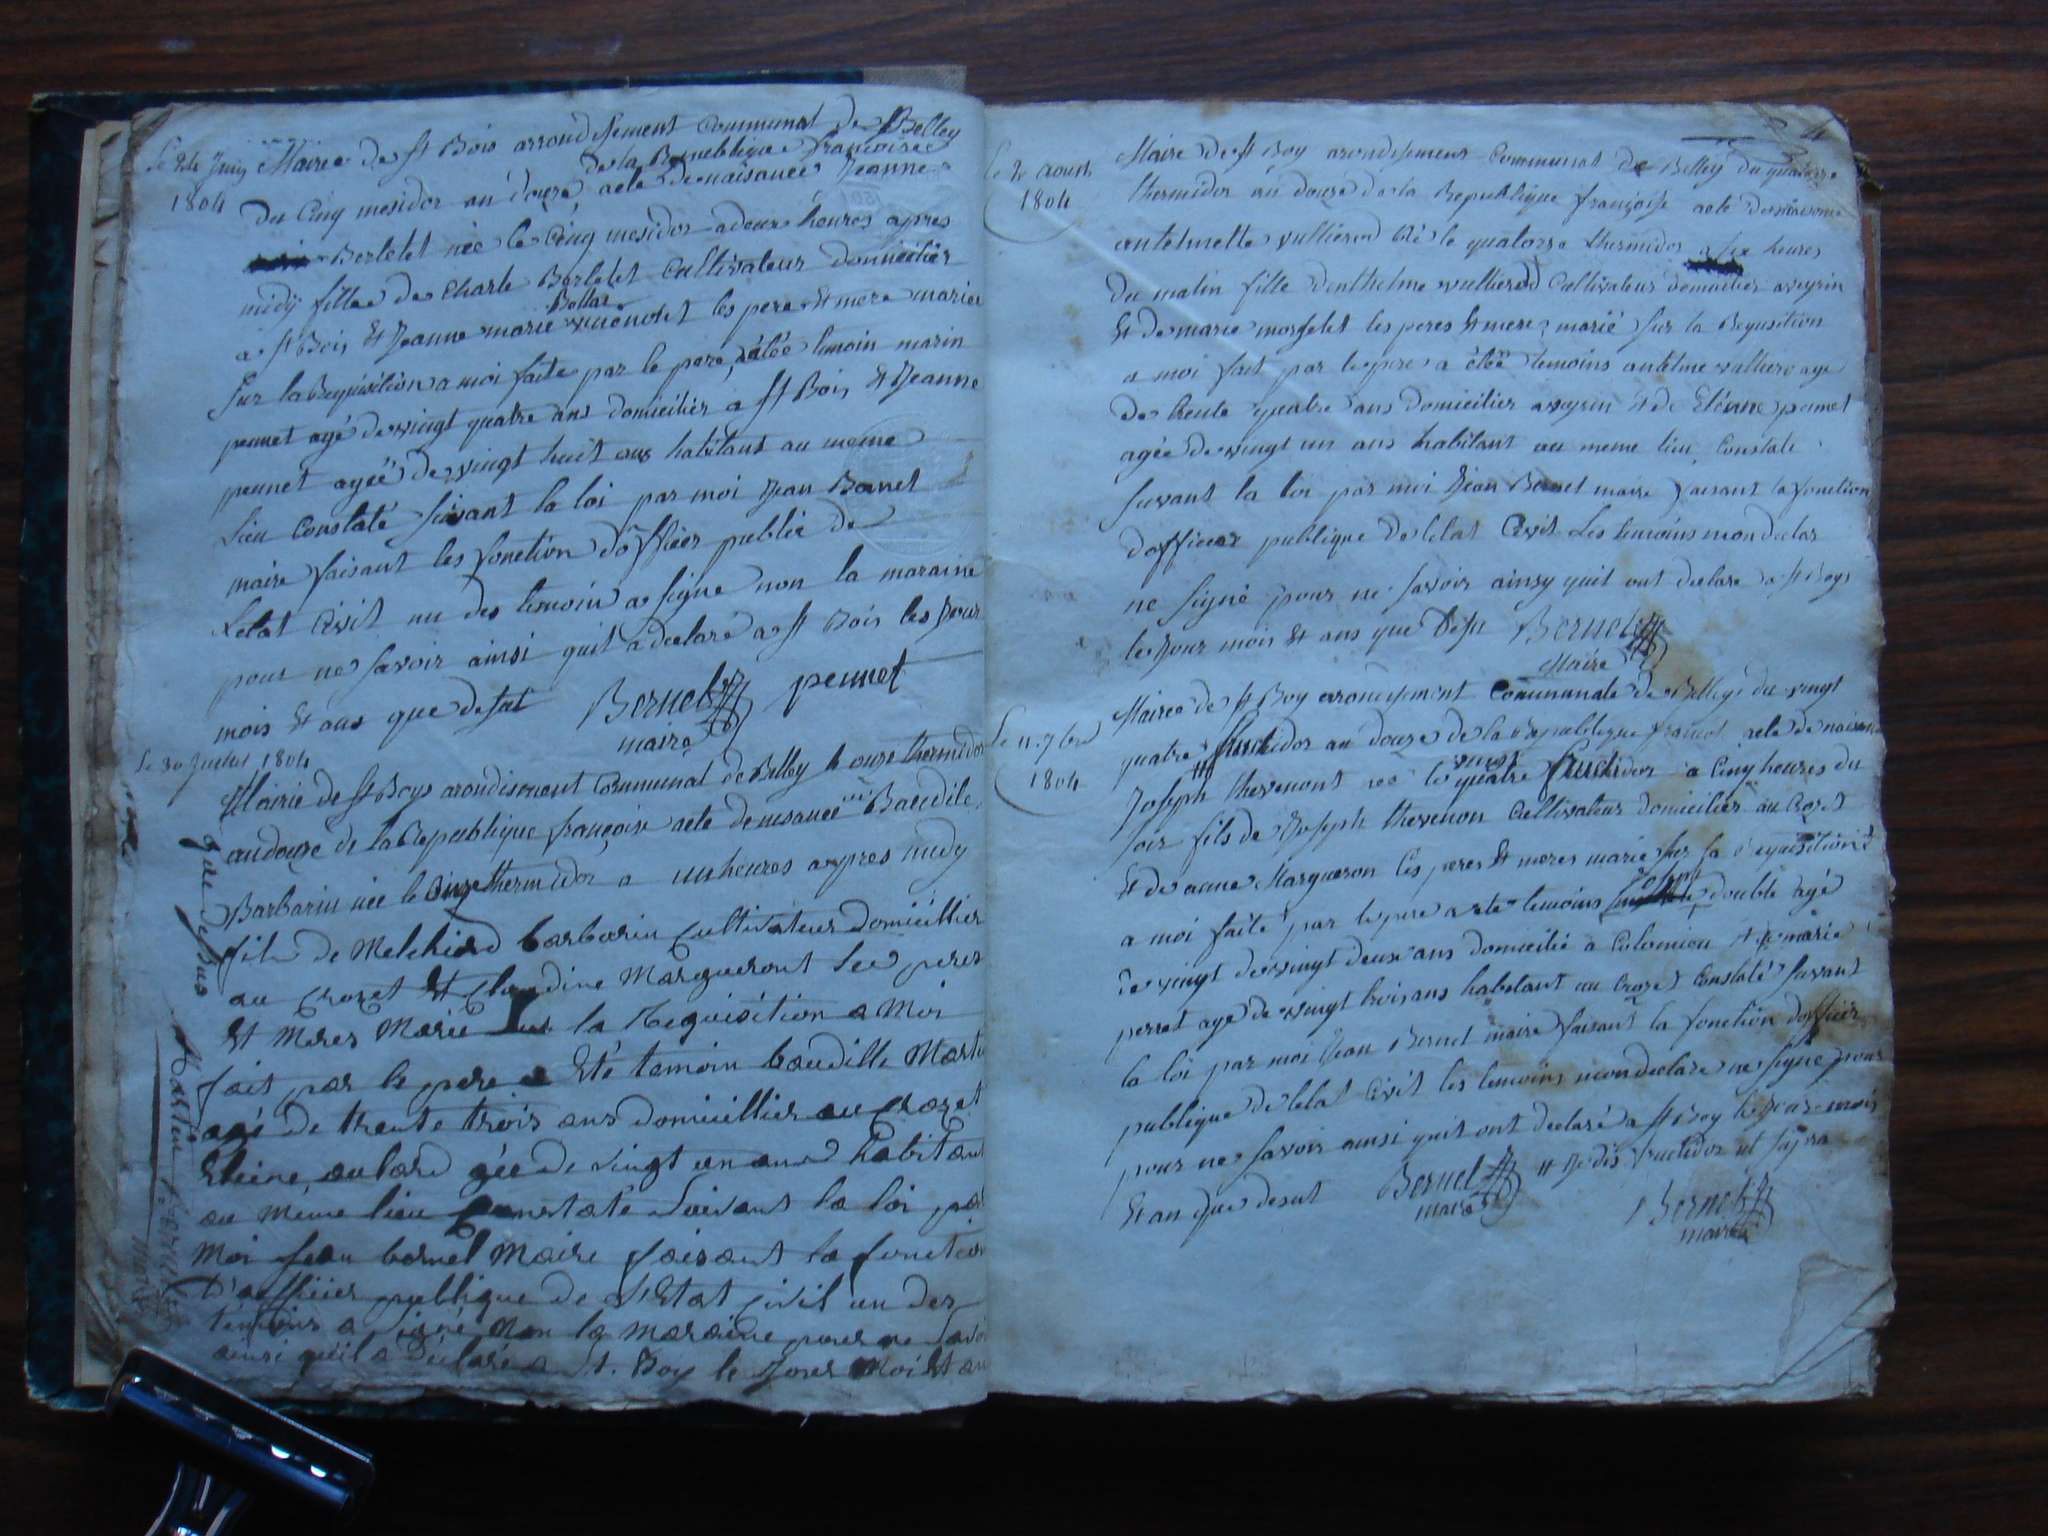 Le 24 Juin
1804
Mairee de St Bois arrondissement Communal de Belley
de la Republique françoise
du Cinq mesidor an douze, acte de naisance Jeanne
Berletet née le Cinq mesidor a deux heures apres
midÿ fille de Charle Berletet Cultivateur domicilier
Bollar
a St Bois Et Jeanne marie les pere Et mere mariee
Sur la Requisition a moi faite par le pere, a étée temoin marin
pennet agé de vingt quatre ans domicilier a St Bois Et Jeanne
pennet agéé de vingt huit ans habitant au meme
Lieu Constaté suivant la loi par moi Jean Bernet
maire faisant les fonction dofficier public de
Letat Civit un des temoin a signe non la maraine
pour ne savoir ainsi quit a declaré a St Bois les Jour
mois Et ans que desut Bernet pennet
maire
Le 30 Juillet 1804
Mairie de St Boys arondisement Communal de Belley le onze thermidor
an douze de la Republique françoise acte de nesance Baudile
Barbarin née le onze thermidor a un heures apres midy
fils de Melchiord barbarin cultivateur domicillier
au Crozet Et Claudine Margueront les peres
Et Meres Marie sur la Requisition a Moi
fait par le pere a Eté temoin baudille Martin
agé de trente trois ans domicillier au Crozet
gée de vingt un ans habitant
au meme lieu Constaté Suivant la loi par
Moi Jean bernet Maire faisant la fonction
D'officier publique de L'Etat civil un des
témoins a signé Non la maraine pour ne savoir
ainsi quil a déclaré a St. Boy le Jour Moi Et an
que dessus
Martin
Bernet
Maire
4
Le 2 aoust
1804
Maire de St Boy arondisement Communal de Belley du quatorze
thermidor an douze de la Republique françoise acte de naisance
antelmette vullierod né le quatorze thermidos a six heures
du matin fille danthelme vullierod Cultivateur domicilier a veyrin
Et de marie morfelet les peres Et mere marié sur la Requsition
a moi fait par le pere a étéé temoins antelme vulliero agé
de trente quatre ans domicilier a veyrin Et de Etéenne pennet
agée de vingt un ans habitant au meme lieu, Constaté
suvant la loi par moi Jean Bernet maire faisant la fonction
dofficier publique de letat Civit Les temoins mon declar
ne signé pour ne savoir ainsy quit ont declare a St Boys
les Jour mois Et ans que Desu Bernet
Maire
Le 11. 7bre
1804
Mairee de St Boy arondisement Communale de Belley du vingt
quatre fructidor an douze de la Republique francoi acte de naisance
Joseph thevenont née le vingt quatre fructidor a Cinq heures du
soir fils de Joseph thevenon Cultivateur domicilier au Crozet
Et de anne Margueron les peres Et meres marié sur la requisition
a moi faite par le pere a ete temoins double agé
de vingt de vingt deux ans domicilié a Colomieu Et de marie
perret age de vingt trois ans habitant au Crozet Constaté suvant
la loi par moi Jean Bernet maire faisant la fonction dofficier
publique de letat Civit les temoins mon declare ne signe pour
pour ne savoir ainsi quit ont declaré a St Boy le Jour mois
Et an que desut Bernet Et Je dis fructidor ut supra
maire Bernet
maire